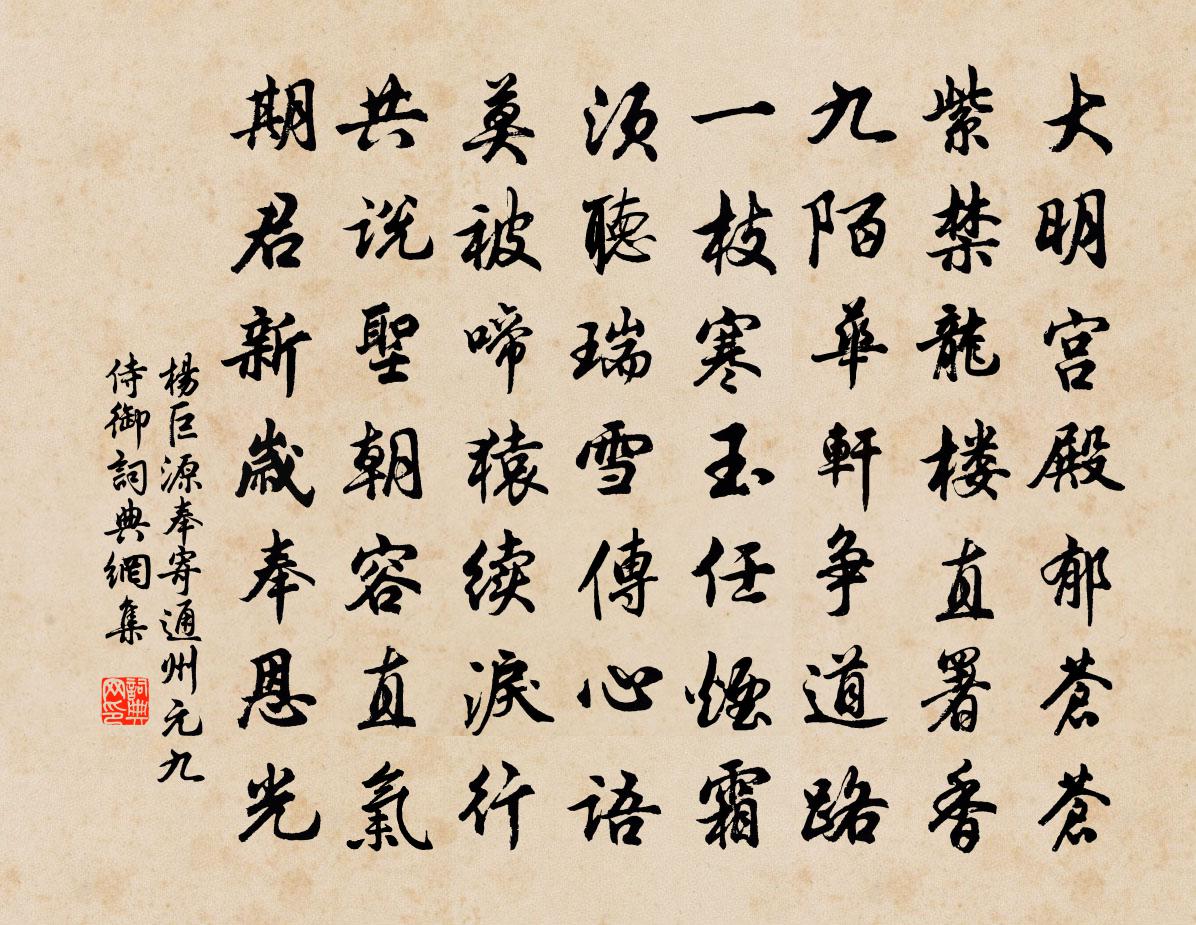 大明宫殿郁苍苍
紫禁龍楼直署香
九陌華軒争道路
一枝寒玉任煙霜
须聽瑞雪傳心语
莫被啼猿续淚行
共说聖朝容直氣
期君新歲奉恩光
楊巨源奉寄通州元九
侍御詞典網集
詞典
网印